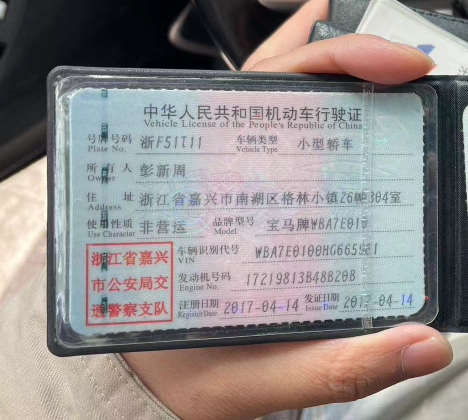 中华人民共和国机动车行驶证
Vehicle License of the People's Republic of China
号牌号码 浙F51T11 车辆类型 小型轿车
Plate No. Vehicle Type
所有人 彭新周
Owner
住址 浙江省嘉兴市南湖区格林小镇26幢304室
Address
使用性质 非营运 品牌型号 宝马牌WBA7E010
Use Character Model
浙江省嘉兴
市公安局交
通警察支队
车辆识别代号
VIN
发动机号码 17219813B48B20B
Engine No.
注册日期 2017-04-14 发证日期 2017-04-14
Register Date Issue Date